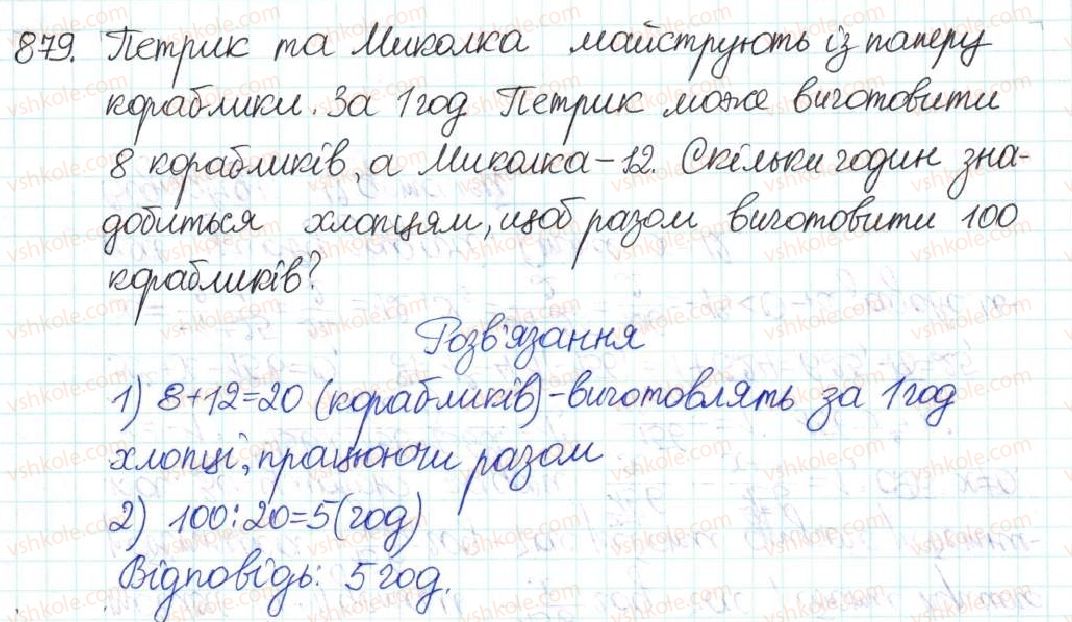 879. Петрик та Миколка майструють із паперу
кораблики. За 1 год Петрик може виготовити
8 корабликів, а Миколка – 12. Скільки годин зна-
добиться хлопцям, щоб разом виготовити 100
корабликів?
Розв'язання
1) 8+12=20 (корабликів) – виготовлять за 1 год
хлопці, працюючи разом
2) 100:20=5 (год)
Відповідь: 5 год.